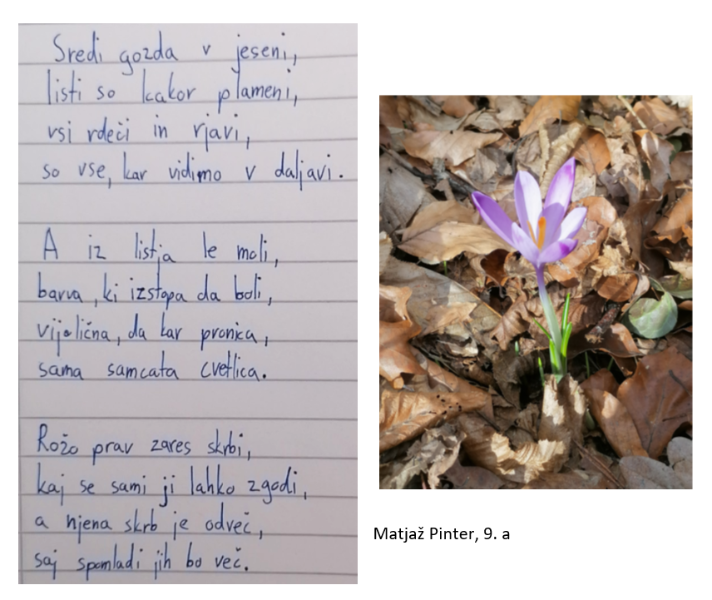 Sredi gozda v jeseni,
listi so kakor plameni,
vsi rdeči in rjavi,
so vse, kar vidimo v daljavi.
A iz listja le moli,
barva, ki izstopa da boli,
vijolična, da kar pronica,
sama samcata cvetlica.
Rožo prav zares skrbi,
kaj se sami ji lahko zgodi,
a njena skrb je odveč,
saj spomladi jih bo več.
Matjaž Pinter, 9. a